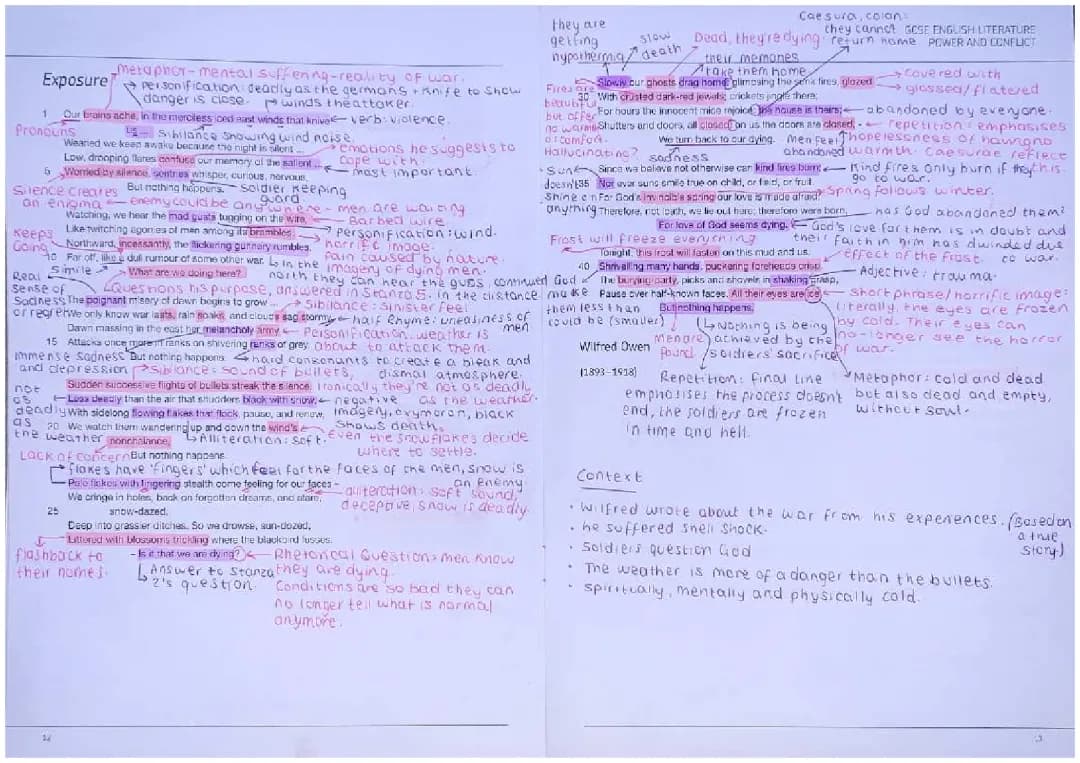 Metaphor - mental suffering - reality of war.
Exposure
Personification: deadly as the germans + knife to show
danger is close.
winds the attacker.
1 Our brains ache, in the merciless iced east winds that knive ...
verb: violence.
Pronouns
Us -
Sibilance showing wind noise.
Wearied we keep awake because the night is silent ...
emotions he suggests to
cope with.
Low, drooping flares confuse our memory of the salient ...
most important.
5 Worried by silence, sentries whisper, curious, nervous,
But nothing happens.
Soldier keeping
guard.
Silence creates
an enigma
enemy could be anywhere - men are waiting
Watching, we hear the mad gusts tugging on the wire,
Barbed wire
Like twitching agonies of men among its brambles.
Personification: wind.
Keeps
Going
Northward, incessantly, the flickering gunnery rumbles,
horrific image.
Pain caused by nature.
10 Far off, like a dull rumour of some other war.
In the
north they can hear the guns
in the distance
imagery of dying men.
Simile
What are we doing here?
Questions his purpose, answered in Stanza 5.
Real
sense of
Sadness
or regret
The poignant misery of dawn begins to grow ...
Sibilance: Sinister feel
We only know war lasts, rain soaks, and clouds sag stormy.
half rhyme: uneasiness of
men
Dawn massing in the east her melancholy army
Personification, weather is
about to attack them.
15 Attacks once more in ranks on shivering ranks of grey,
But nothing happens.
hard consonants to create a bleak and
dismal atmosphere.
immense sadness
and depression
Sibilance: sound of bullets,
Sudden successive flights of bullets streak the silence.
Ironically they're not as deadly
as the weather.
not
as
deadly
as
the weather
Less deadly than the air that shudders black with snow,
negative
imagery, oxymoron, black
shows death.
With sidelong flowing flakes that flock, pause, and renew,
20 We watch them wandering up and down the wind's
nonchalance,
Alliteration: soft.
Even the snowflakes decide
where to settle.
Lack of concern
But nothing happens.
flakes have 'fingers' which feel for the faces of the men, snow is
an enemy.
Pale flakes with fingering stealth come feeling for our faces -
alliteration: soft sound,
deceptive, snow is deadly.
We cringe in holes, back on forgotten dreams, and stare,
25 snow-dazed,
Deep into grassier ditches. So we drowse, sun-dozed,
Littered with blossoms trickling where the blackbird fusses.
flashback to
their homes.
- Is it that we are dying?
Answer to Stanza
2's question.
Rhetorical Question: men know
they are dying.
Conditions are so bad they can
no longer tell what is normal
anymore.
14
Caesura, colon:
they cannot
return home
GCSE ENGLISH LITERATURE
POWER AND CONFLICT
they are
getting
hypothermia
slow
death
Dead, they're dying.
their memories
take them home
Slowly our ghosts drag home: glimpsing the sunk fires, glozed
covered with
glossed/flatered
Fires are
beautiful
but offer
no warmth
or comfort.
Hallucinating?
30 With crusted dark-red jewels; crickets jingle there;
For hours the innocent mice rejoice: the house is theirs;
abandoned by everyone.
Shutters and doors, all closed: on us the doors are closed, -
repetition: emphasises
hopelessness of having no
warmth. Caesurae reflect
this.
We turn back to our dying.
Men feel
abandoned
sadness
Since we believe not otherwise can kind fires burn;
Kind fires only burn if they
go to war.
Sun
doesn't
Shine on
anything
35 Nor ever suns smile true on child, or field, or fruit.
For God's invincible spring our love is made afraid;
Spring follows winter.
Therefore, not loath, we lie out here; therefore were born,
has God abandoned them?
For love of God seems dying.
God's love for them is in doubt and
their faith in him has dwindled due
to war.
Frost will freeze everything
Tonight, this frost will fasten on this mud and us,
effect of the frost.
40 Shrivelling many hands, puckering foreheads crisp.
Adjective: trauma.
continued God
make
them less than
could be (smaller)
The burying-party, picks and shovels in shaking grasp,
Pause over half-known faces. All their eyes are ice,
Short phrase/horrific image:
literally, the eyes are frozen
by cold. Their eyes can
no-longer see the horror
of war.
But nothing happens.
Nothing is being
achieved by the
soldiers' sacrifice
Men are
found
Wilfred Owen
(1893–1918)
Repetition: final line
emphasises the process doesn't
end, the soldiers are frozen
in time and hell.
Metaphor: cold and dead
but also dead and empty,
without soul.
Context
• Wilfred wrote about the war from his experiences. (Based on
a true
story)
• he suffered shell shock.
• Soldiers question God
• The weather is more of a danger than the bullets.
• Spiritually, mentally and physically cold.